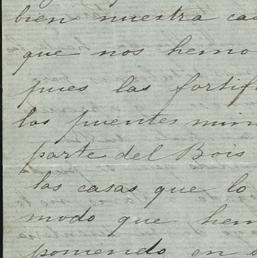 bien nuestra cas
que nos hemo
pues las fortif
los puentes min
parte del Bois
las casas que lo
modo que hem
poniendo en